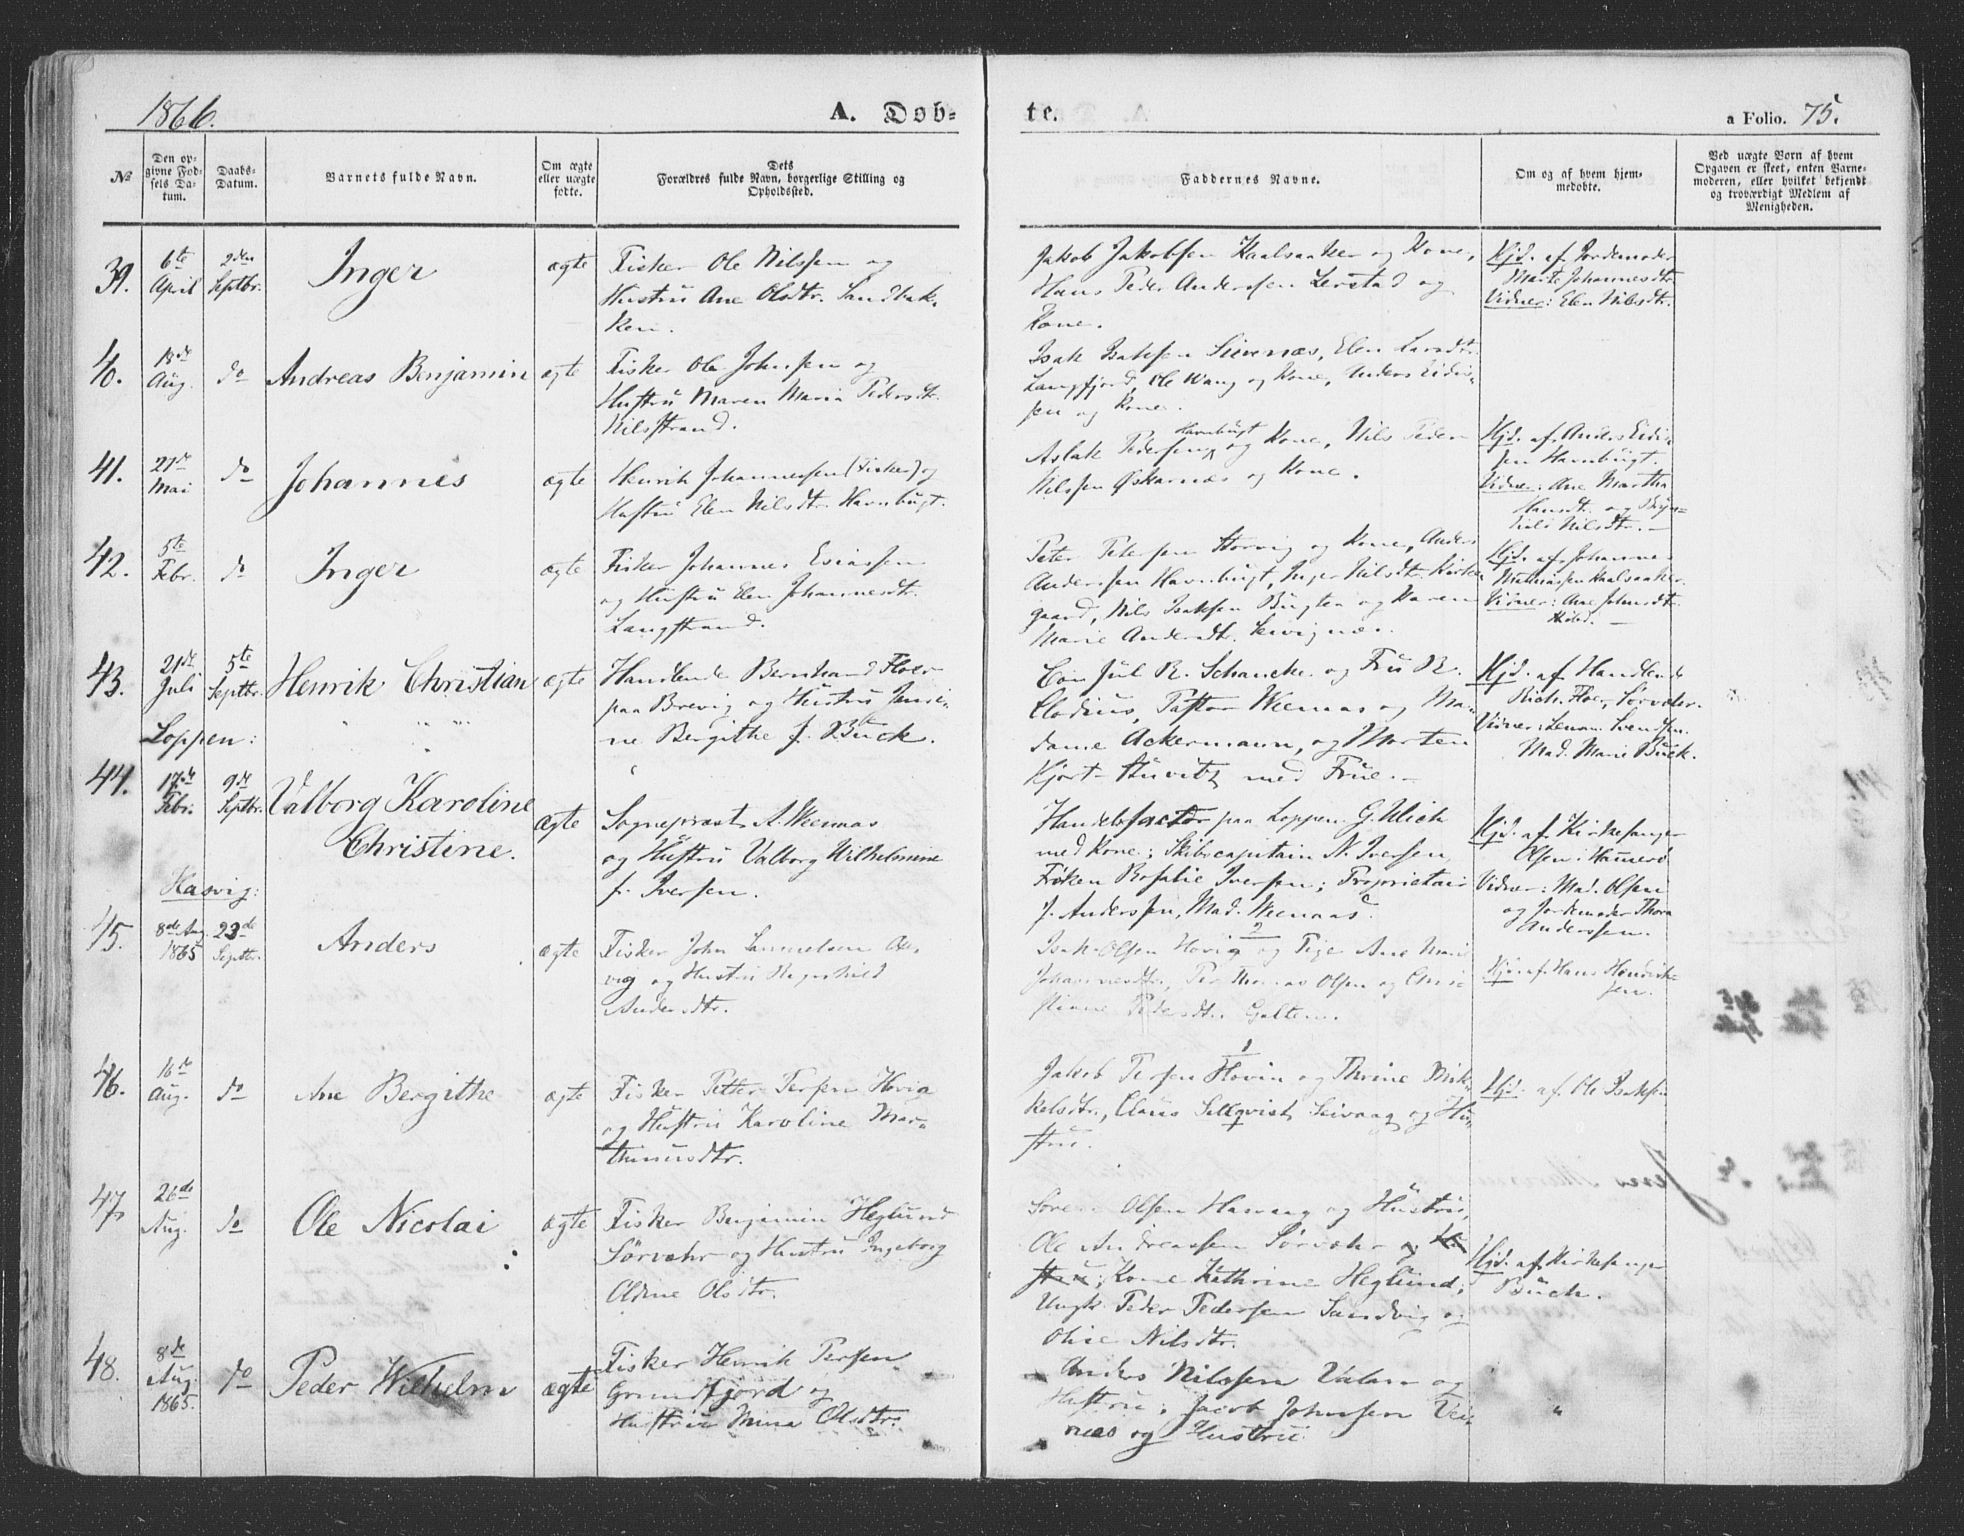 1866.
A. Døb-
te.
a Folio. 75.
№
Den op-
givne Fød-
sels Da-
tum.
Daabs-
Datum.
Barnets fulde Navn.
Om ægte
eller uægte
fødte.
Dets
Forældres fulde Navn, borgerlige Stilling og
Opholdssted.
Faddernes Navne.
Om og af hvem hjem-
medøbte.
Ved uægte Børn af hvem
Opgaven er skeet, enten Barne-
moderen, eller hvilket bekjendt
og troværdigt Medlem af
Menigheden.
39.
6te
April
2den
Septbr.
Inger
ægte
Fisker Ole Nilssen og
Hustru Ane Olsdtr. Sandbak-
ken.
Jakob Jakobsen Kaalsaaker og Kone,
Hans Peder Anderssen Lerstad og
Kone.
Hjd. af Jordemoder
Marte Johannesdtr.
Vidner: Elen Nilsdtr.
40.
18de
Aug.
do
Andreas Benjamin
ægte
Fisker Ole Johnsen og
Hustru Maren Maria Pedersdtr.
Nilsstrand.
Isak Isaksen Sievenæs, Elen Larsdtr.
Langfjord, Ole Wang og Kone, Anders Eidis-
sen og Kone.
41.
21de
Mai
do
Johannes
ægte
Henrik Johannessen (Fisker) og
Hustru Elen Nilsdtr. Havnbugt.
Aslak Pedersen Havnbugt og Kone, Nils Peder
Nilssen Oskarnæs og Kone.
Hjd. af Anders Eidis-
sen Havnbugt.
Vidner: Ane Martha
Hansdt. og
Nilsdtr. —
42.
5te
Febr.
do
Inger
ægte
Fisker Johannes Esiassen
og Hustru Elen Johannesdtr.
Langstrand.
Peter Petersen Storvig og Kone, Anders
Anderssen Havnbugt, Inger Nilsdtr. Kirke-
gaard, Nils Isaksen Bugten og Karen
Marie Andersdtr.
Hjd. af Johannes
Kaalsaaker.
Vidner: Ane Johnsdtr.
43.
21de
Juli
5te
Septbr.
Henrik Christian
ægte
Handlende Bernhard Floer
paa Brevig og Hustru Jensi-
ne Bergithe f. Buck.
Jul R. Schancke og Fru R.
Clodius, Pastor Weenaas og Ma-
dame Ackermann, og Morten
Kjort- Stuvitz med Frue. —
Hjd. af Handlende
Rich. Floer, Sørvær.
Vidner: Svendsen.
Mad. Marie Buck.
Loppen:
44.
17de
Febr.
9de
Septbr.
Valborg Karoline
Christine.
ægte
Sogneprest A. Weenaas
og Hustru Valborg Wilhelmine
f. Iversen.
Handelsfactor paa Loppen G. Ulich
med Kone; Skibscapitain N. Iversen,
Frøken Rosalie Iversen; Proprietair
J. Anderssen, Mad. Weenaas.
Hjd. af Kirkesanger
Olsen i Hammerø
Vidner: Mad. Olsen
og Jordemoder Thora
Anderssen.
Hasvig:
45.
8de Aug.
1865
23de
Septbr.
Anders
ægte
Fisker John Samuelsen
vig og Hustru Ragnhild
Andersdtr.
Isak Olsen Hovig og Pige Ane Marie
Johannesdtr., Per Thomas Olsen og Chri-
stiane Pedersdtr. Galten.
Hjd. af Hans Hendrik-
sen.
46.
16de
Aug.
do
Ane Bergithe
ægte
Fisker Petter Persen Hovig
og Hustru Karoline Mar-
thinusdtr.
Jakob Persen Hovin og Thrine Mik-
kelsdtr., Claus Sellqvist Seivaag og Hu-
stru.
Hjd. af Ole Isaksen
47
26de
Aug.
do
Ole Nicolai
ægte
Fisker Benjamin Heglund
Sørvær og Hustru Ingeborg
Oldine Olsdtr.
Søren Olsen Hasvaag og Hustru,
Ole Andreassen Sørvær og
Kone Kathrine Heglund;
Ungk. Peder Pedersen Sandvig og
Olie Nilsdtr.
Hjd. af Kirkesanger
Buch.
48.
8de
Aug.
1865.
do
Peder Wilhelm
ægte
Fisker Henrik Persen
Grundfjord og
Hustru Mina Olsdtr.
Anders Nilssen Valan og
Hustru; Jacob Johnsen Vei-
næs og Hustru
"